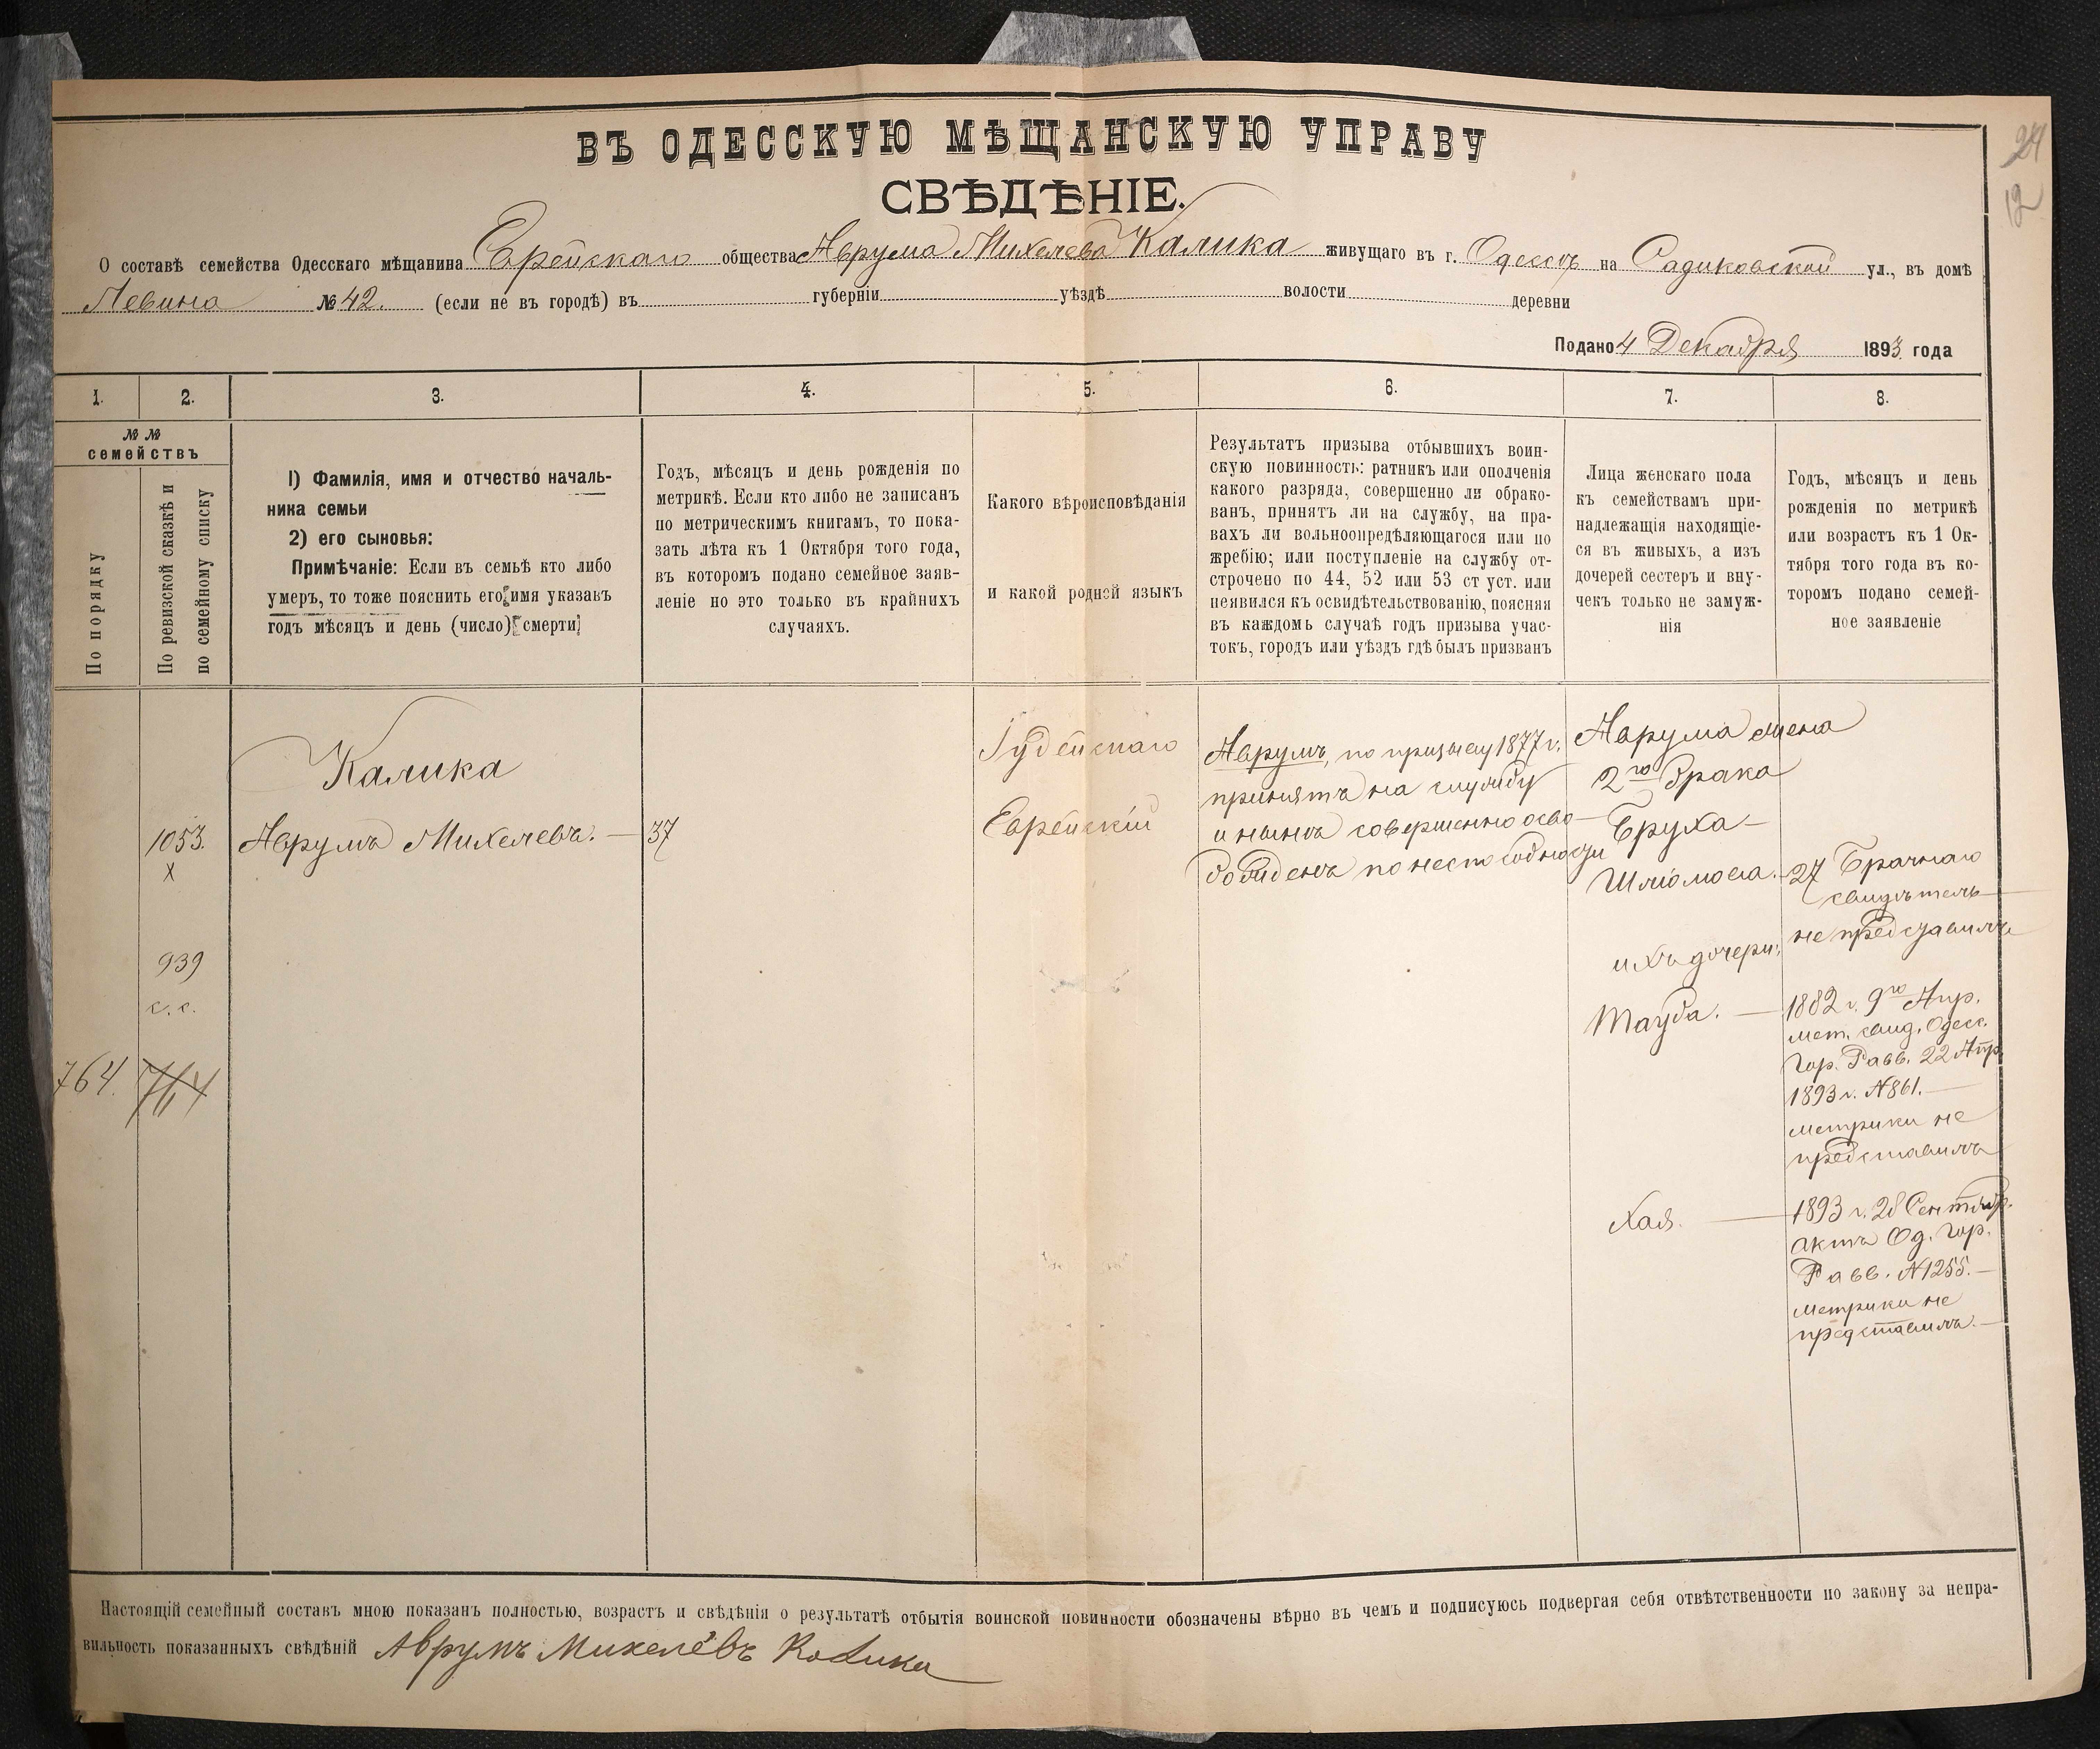 24
12
ВЪ ОДЕССКУЮ МѢЩАНСКУЮ УПРАВУ
СВѢДѢНІЕ.
О составѣ семейства Одесскаго мѣщанина Еврейскаго общества Аврума Михелева Калика живущаго въ г. Одессѣ на Садиковской ул., въ домѣ
Левина № 42. (если не въ городѣ) въ губерніи уѣздѣ волости деревни
Подано 4 Декабря 1893 года
1. 2. 3. 4. 5. 6. 7. 8.
№№
семействъ
По порядку
По ревизской сказкѣ и
по семейному списку
1) Фамилія, имя и отчество началь-
ника семьи
2) его сыновья:
Примѣчаніе: Если въ семьѣ кто либо
умеръ, то тоже пояснить его имя указавъ
годъ мѣсяцъ и день (число) смерти
Годъ, мѣсяцъ и день рожденія по
метрикѣ. Если кто либо не записанъ
по метрическимъ книгамъ, то пока-
зать лѣта къ 1 Октября того года,
въ которомъ подано семейное заяв-
леніе но это только въ крайнихъ
случаяхъ.
Какого вѣроисповѣданія
и какой родной языкъ
Результатъ призыва отбывшихъ воин-
скую повинность: ратникъ или ополченія
какого разряда, совершенно ли обрако-
ванъ, принятъ ли на службу, на пра-
вахъ ли вольноопредѣляющагося или по
жребію; или поступленіе на службу от-
строчено по 44, 52 или 53 ст уст. или
неявился къ освидѣтельствованію, поясняя
въ каждомъ случаѣ годъ призыва учас-
токъ, городъ или уѣздъ гдѣ былъ призванъ
Лица женскаго пола
къ семействамъ при-
надлежащія находящіе-
ся въ живыхъ, а изъ
дочерей сестеръ и вну-
чекъ только не замуж-
нія
Годъ, мѣсяцъ и день
рожденія по метрикѣ
или возрастъ къ 1 Ок-
тября того года въ ко-
торомъ подано семей-
ное заявленіе
764.
1053.
х
939
с. с.
764
Калика
Аврумъ Михелевъ. —
37
Іудейскаго
Еврейскій
Аврумъ, по призыву 1877 г.
принятъ на службу
и нынѣ совершенно осво-
божденъ по неспособности
Аврума жена
2го брака
Бруха —
Шліомова. —
ихъ дочери:
Тауба. —
Хая. —
27 Брачнаго
свидѣтель —
не представилъ
1882 г. 9го Апр.
мет. свид. Одес.
Гор. Равв. 22 Апр.
1893 г. №861. —
метрики не
представилъ
1893 г. 28 Сентябр.
актъ Од. Гор.
Равв. №1255. —
метрики не
представилъ. —
Настоящій семейный составъ мною показанъ полностью, возрастъ и свѣдѣнія о результатѣ отбытія воинской повинности обозначены вѣрно въ чемъ и подписуюсь подвергая себя отвѣтственности по закону за непра-
вильность показанныхъ свѣдѣній Аврумъ Михелевъ Калика